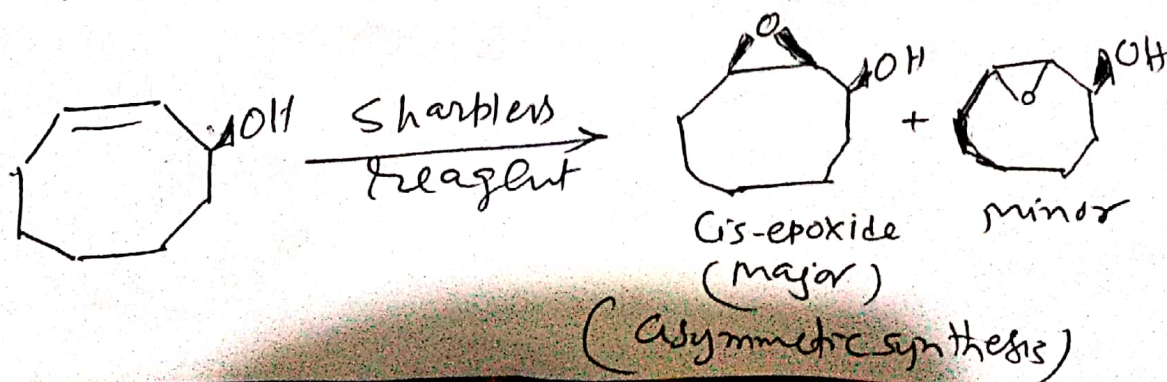 OH
Sharpless
reagent
O
OH
+
O
OH
Cis-epoxide
(major)
minor
(asymmetric synthesis)